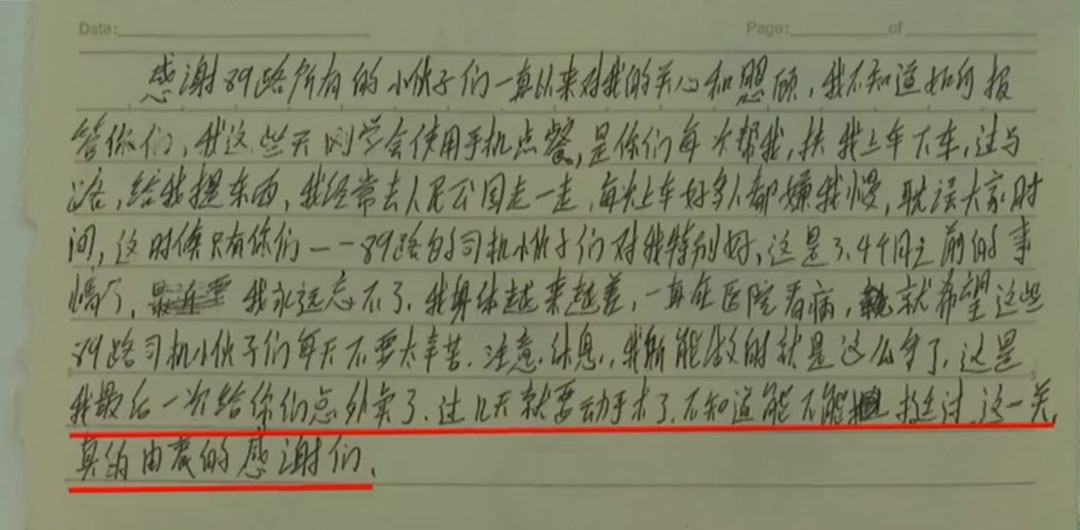 Date: Page: of
感谢89路所有的小伙子们一直以来对我的关心和照顾,我不知道如何报
答你们,我这些天刚学会使用手机点餐,是你们每次帮我,扶我上车下车,过马
路,给我提东西,我经常去人民公园走一走,每次上车好多人都嫌我慢,耽误大家时
间,这时候只有你们——89路的司机小伙子们对我特别好,这是3.4个月之前的事
情了,我永远忘不了.我身体越来越差,一直在医院看病,就希望这些
89路司机小伙子们每天不要太辛苦.注意.休息,我所能做的就是这么多了.这是
我最后一次给你们点外卖了.过几天就要动手术了.不知道能不能挺过这一关,
真的由衷的感谢们.